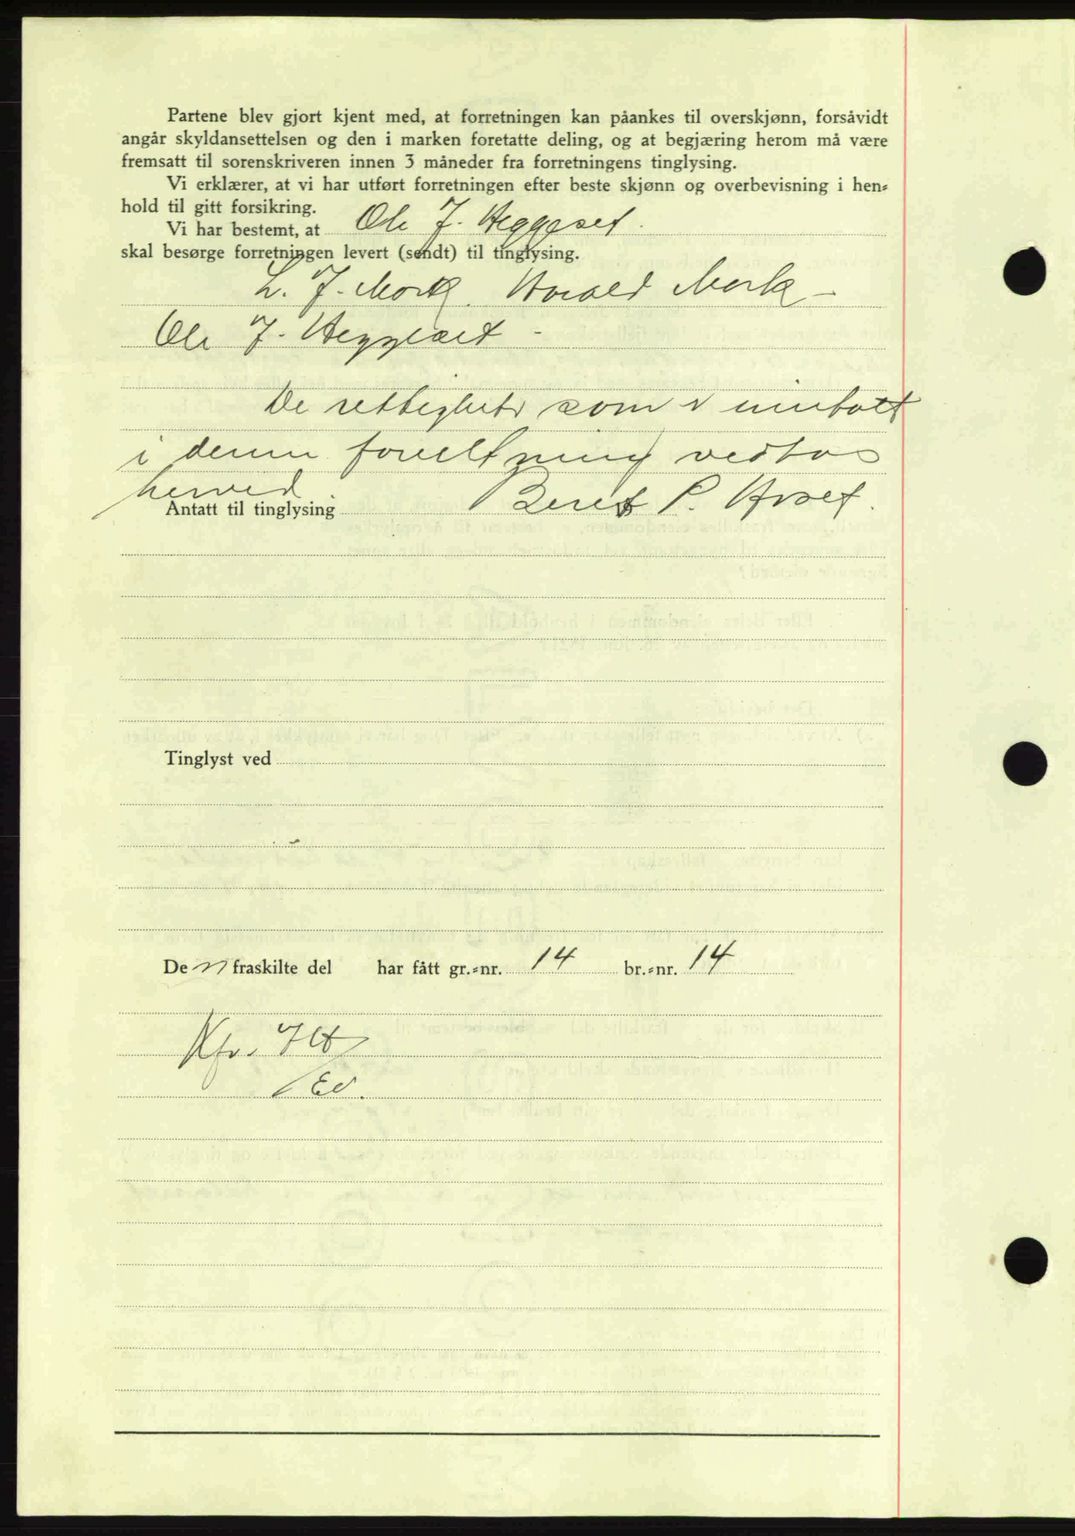 Partene blev gjort kjent med, at forretningen kan påankes til overskjønn, forsåvidt
angår skyldansettelsen og den i marken foretatte deling, og at begjæring herom må være
fremsatt til sorenskriveren innen 3 måneder fra forretningens tinglysing.
Vi erklærer, at vi har utført forretningen efter beste skjønn og overbevisning i hen-
hold til gitt forsikring.
Vi har bestemt, at Ole J. Heggeset.
skal besørge forretningen levert (sendt) til tinglysing.
L. J. Mork. Harald Mork -
Ole J. Heggeset -
De rettigheter som er inntatt
i denne forretning vedtas
herved
Antatt til tinglysing Beret P.
Tinglyst ved
De n fraskilte del har fått gr.-nr. 14 br.-nr. 14
Kfr.